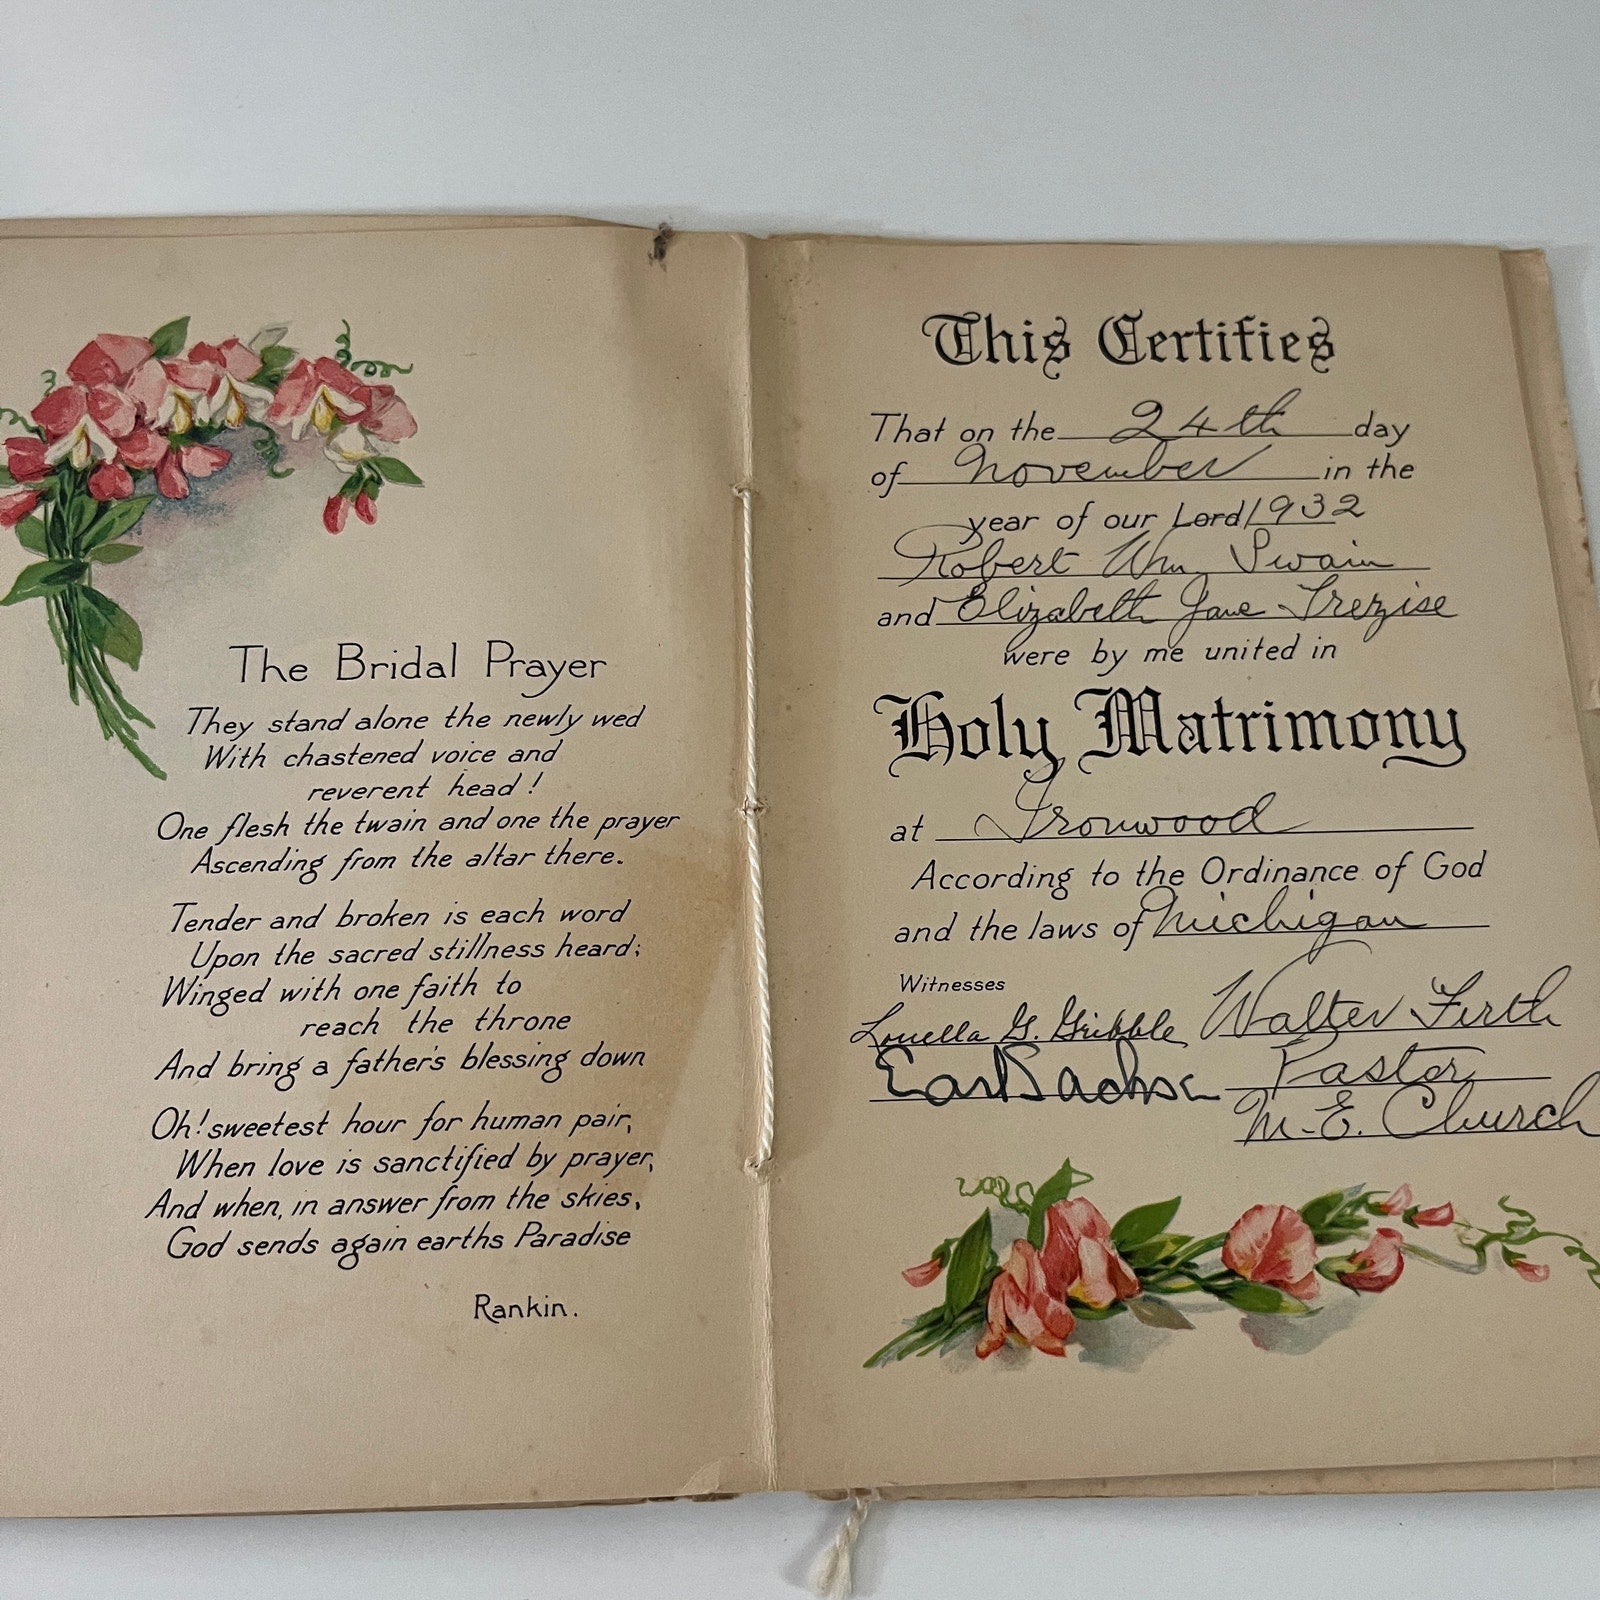 The Bridal Prayer
They stand alone the newly wed
With chastened voice and
reverent head!
One flesh the twain and one the prayer
Ascending from the altar there.
Tender and broken is each word
Upon the sacred stillness heard;
Winged with one faith to
reach the throne
And bring a father's blessing down
Oh! sweetest hour for human pair,
When love is sanctified by prayer,
And when, in answer from the skies,
God sends again earths Paradise
Rankin.
This Certifies
That on the 24th day
of November in the
year of our Lord 1932
Robert Wm. Swain
and Elizabeth Jane Trezise
were by me united in
Holy Matrimony
at Ironwood
According to the Ordinance of God
and the laws of Michigan
Witnesses
Louella G. Gribble Walter Firth
Earl Pastor
M.E. Church